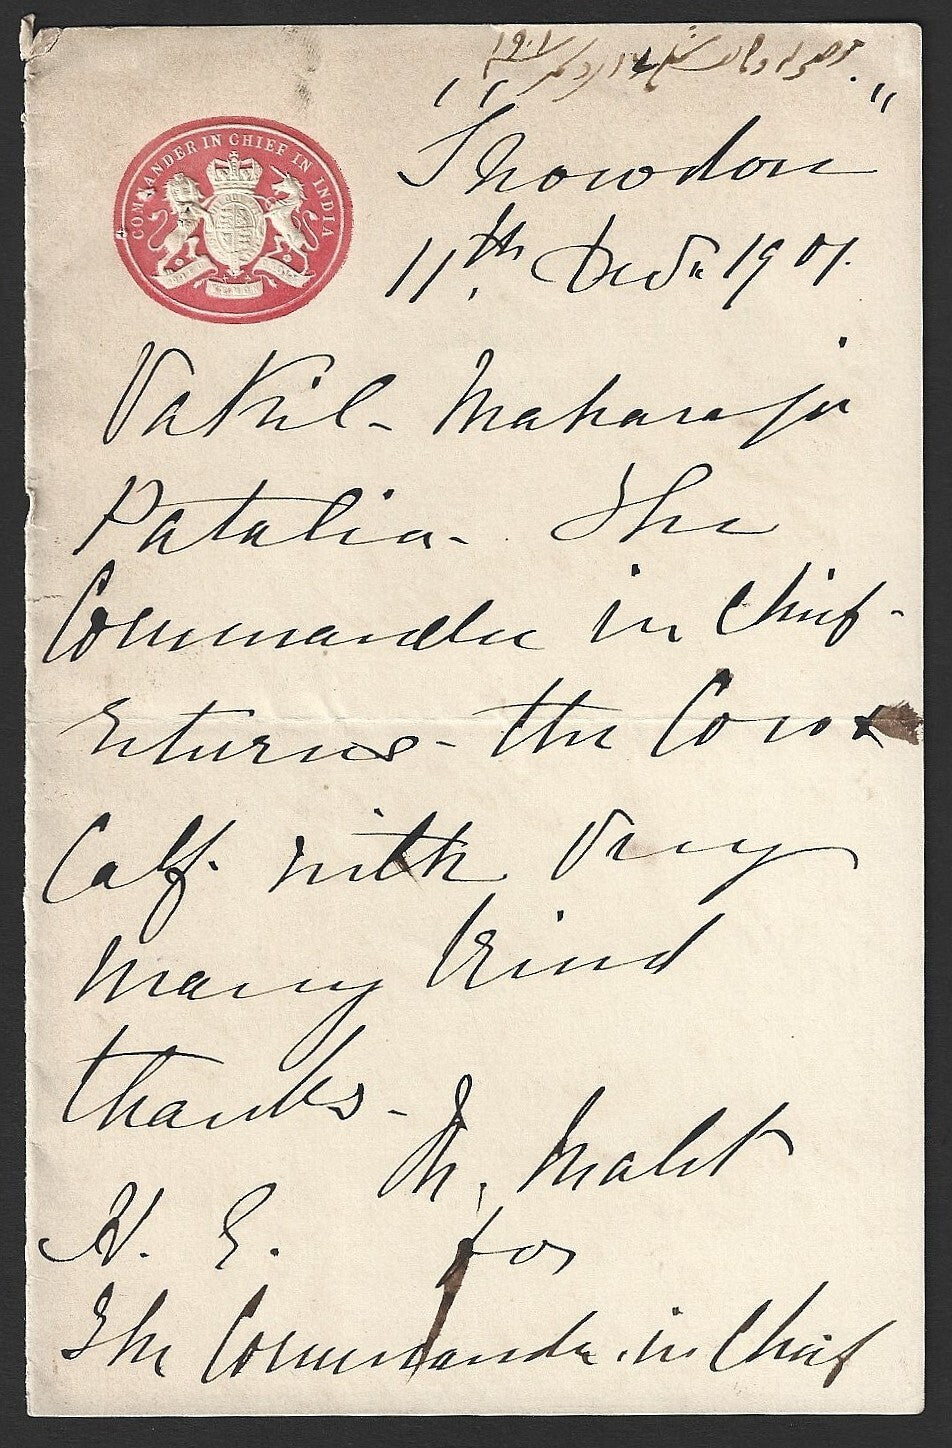 COMMANDER IN CHIEF IN INDIA
۱۹۰۱
"Snowdon"
11th Decr 1901.
Vakil - Maharaja
Patalia - The
Commander in Chief -
returns - the Cow &
Calf. with very
many kind
thanks -
M. Malet
H. E. for
The Commander in Chief